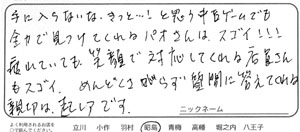 手に入らないな、きっと…！と思う中古ゲームでも
全力で見つけてくれるパオさんは、スゴイ!!!
疲れていても、笑顔で対応してくれる店員さん
もスゴイ。めんどくさがらず質問に答えてくれる
親切は、超レアです。
ニックネーム
よく利用されるお店を
○で囲んでください。
立川 小作 羽村 昭島 青梅 高幡 堀之内 八王子